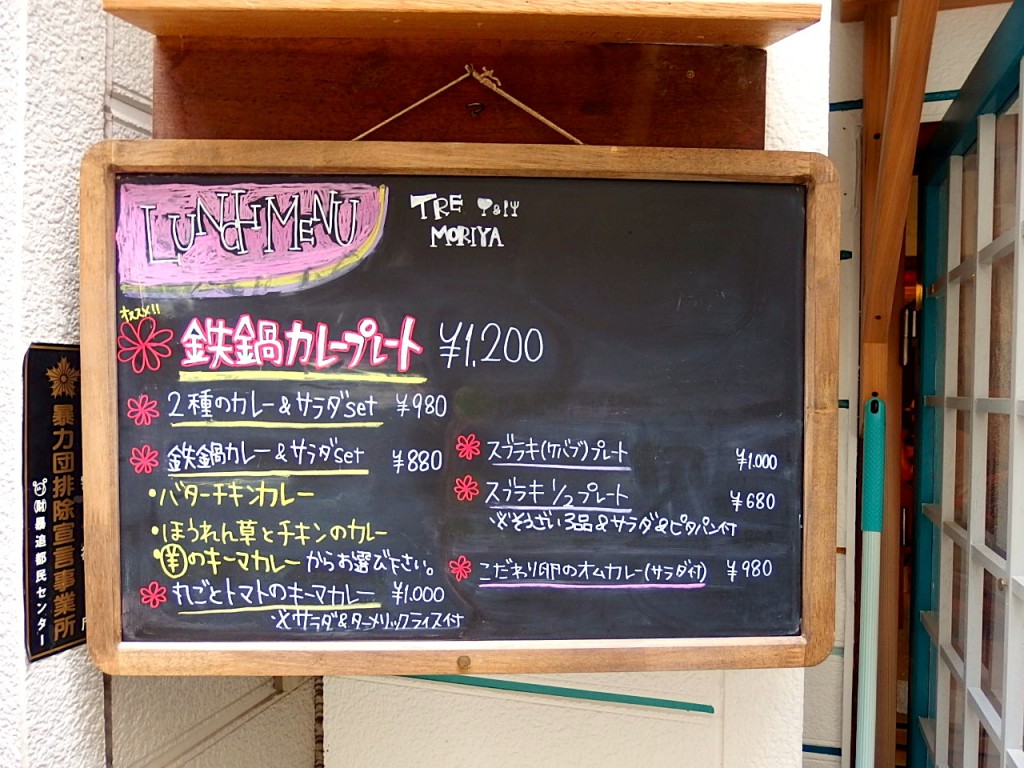 LUNCH MENU
TRE
MORIYA
オススメ!!
鉄鍋カレープレート ¥1,200
2種のカレー&サラダset ¥980
鉄鍋カレー&サラダset ¥880
・バターチキンカレー
・ほうれん草とチキンのカレー
・羊のキーマカレーからお選び下さい。
丸ごとトマトのキーマカレー ¥1.000
※サラダ&ターメリックライス付
スブラキ(ケバブ)プレート ¥1.000
スブラキ 1/2プレート ¥680
※そうざい3品&サラダ&ピタパン付
こだわり卵のオムカレー(サラダ付) ¥980
暴力団排除宣言事業所
(財)暴追都民センター